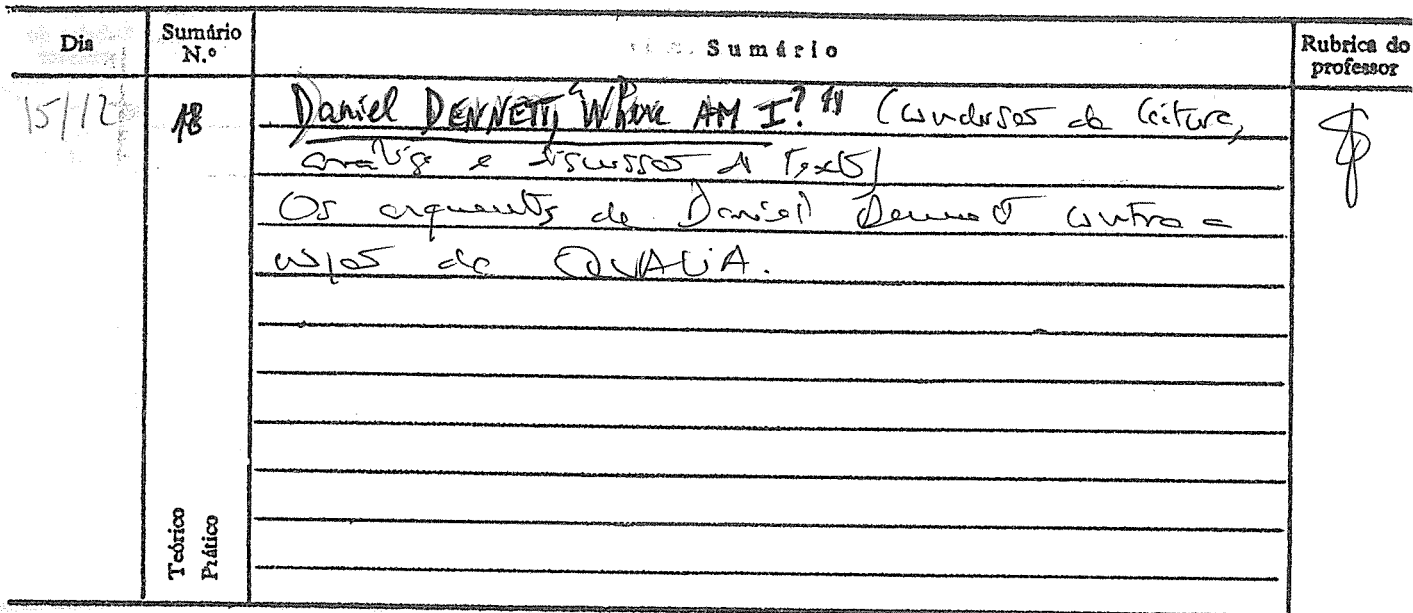 Dia
Sumário N.º
Sumário
Rubrica do professor
15/12
18
Daniel DENNETT, "Where AM I?" (conclusão da leitura,
análise e discussão do texto)
Os argumentos de Daniel Dennett contra a
noção de QUALIA.
Teórico
Prático